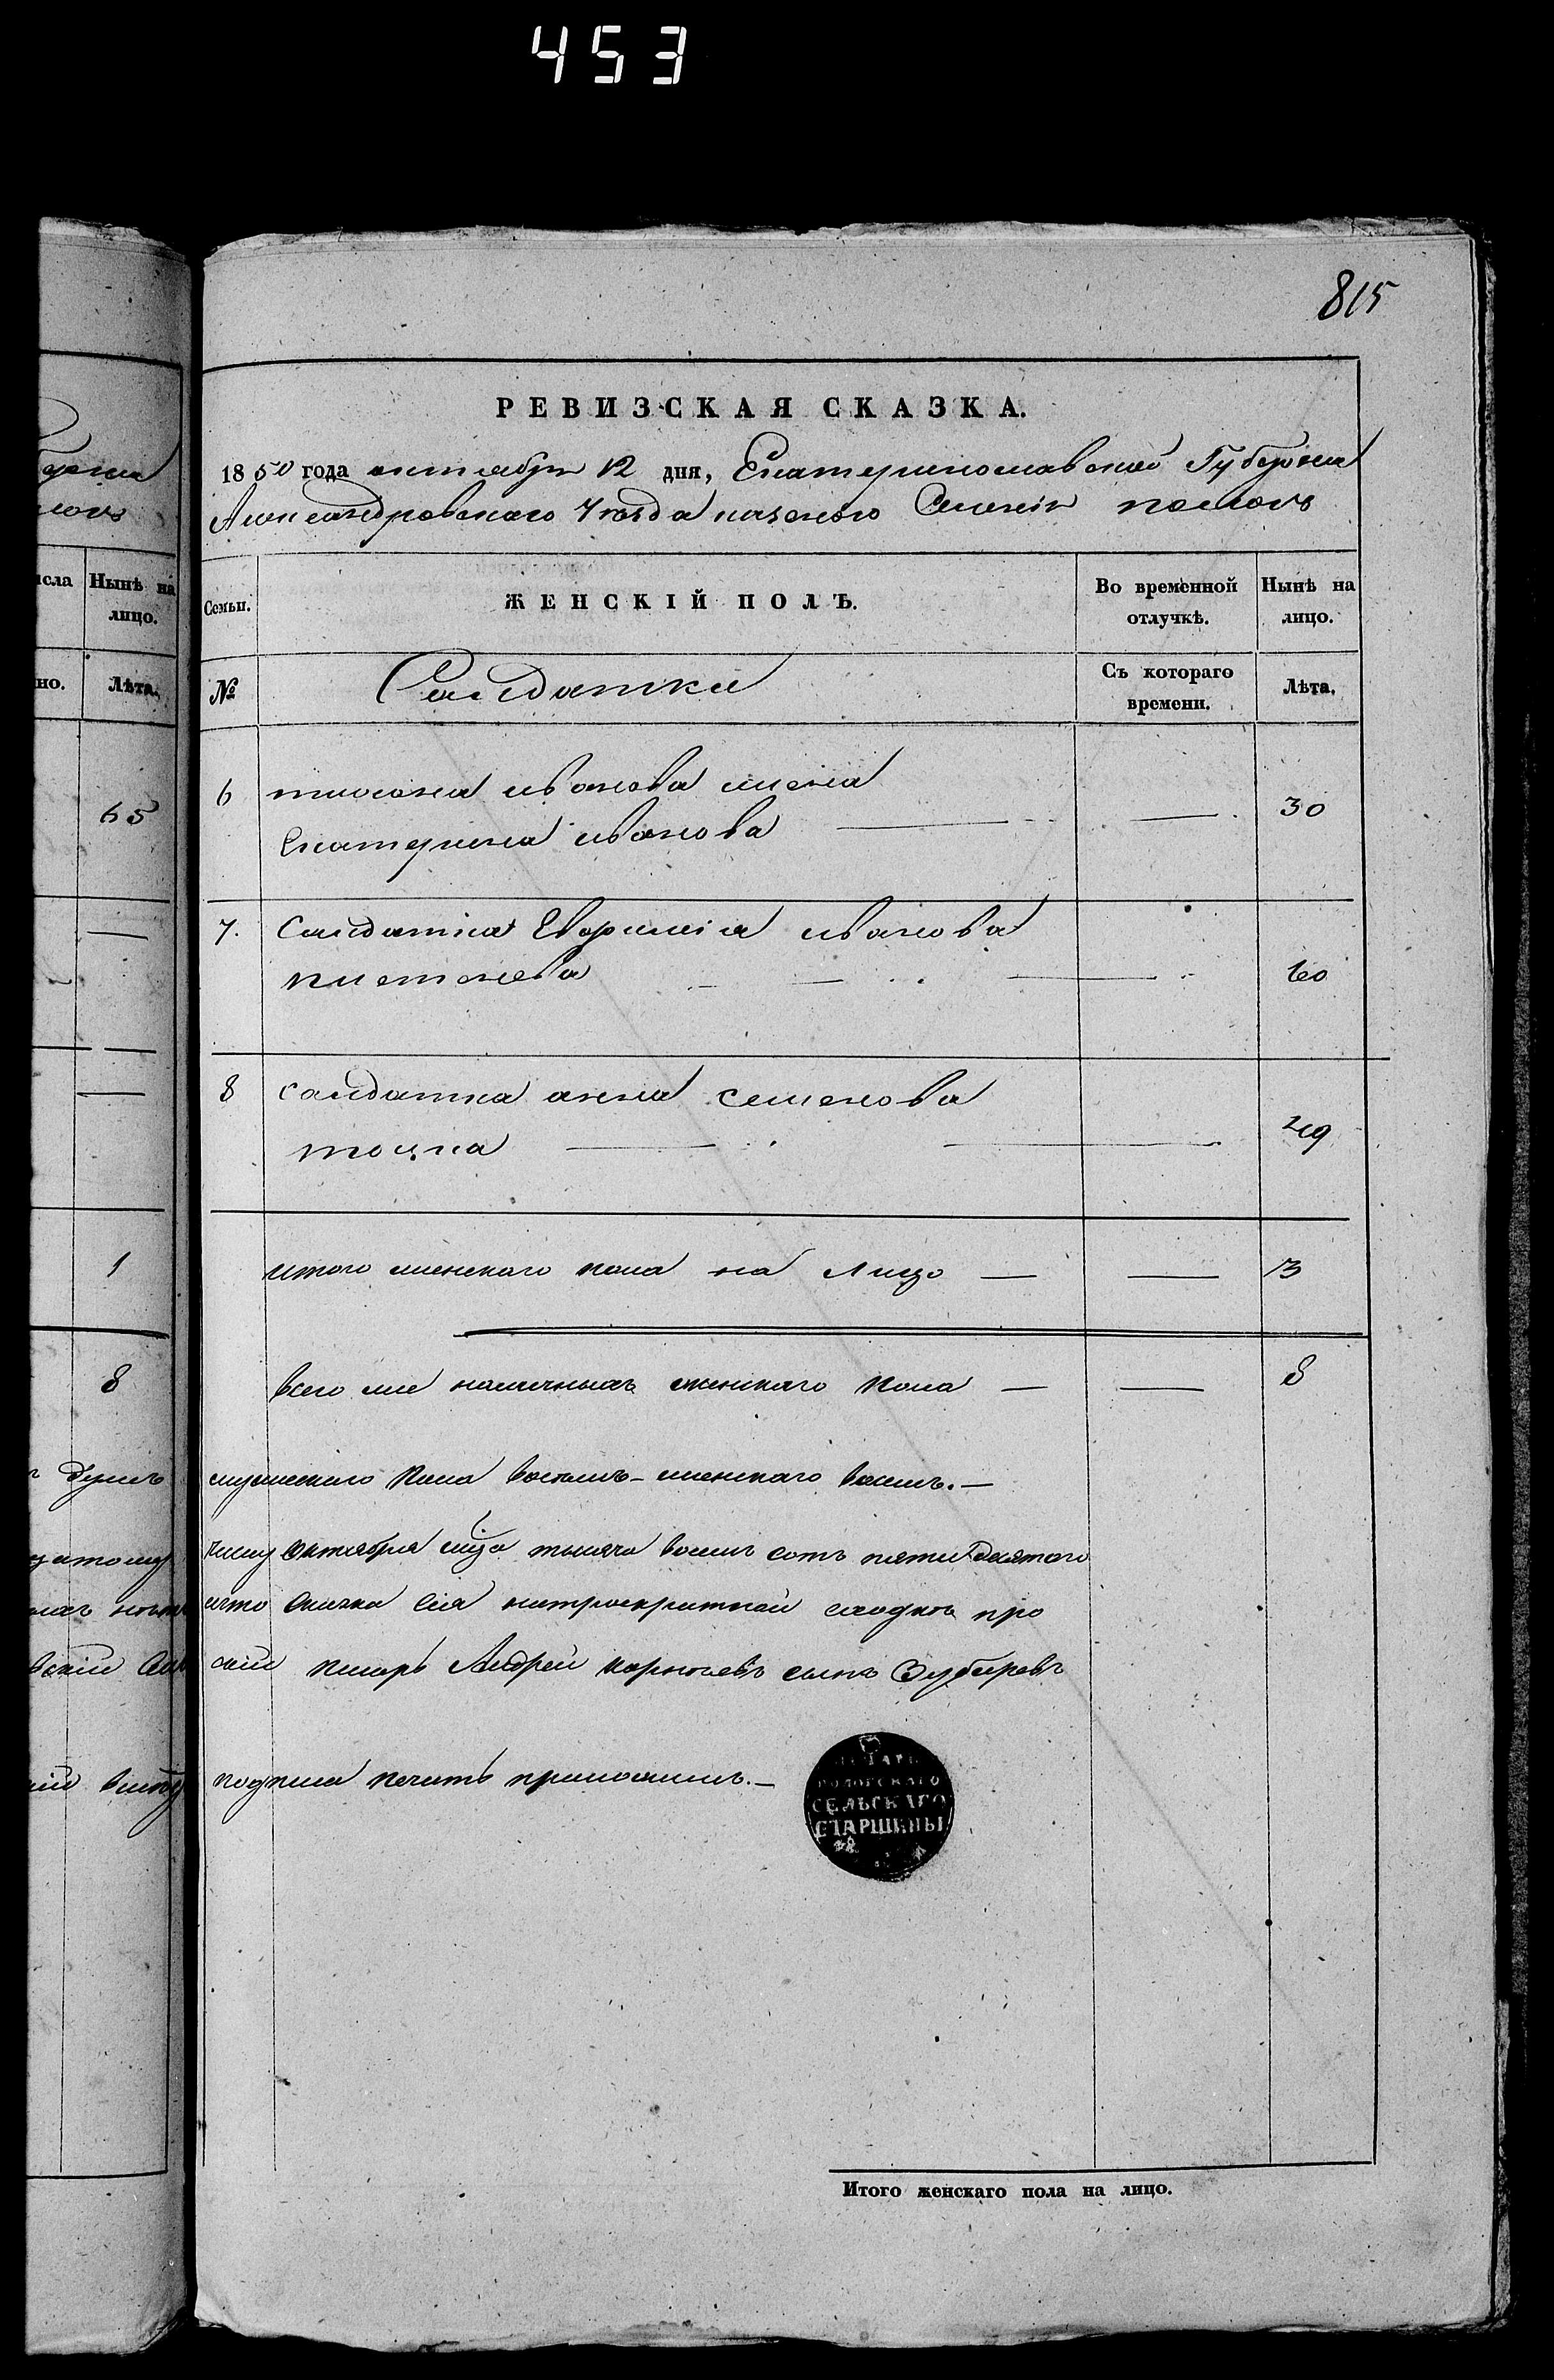 453
815
РЕВИЗСКАЯ СКАЗКА.
1850 года октября 12 дня, Екатеринославской Губернии
Александровского Уезда казеного Селенія пологъ
Семьи. ЖЕНСКІЙ ПОЛЪ. Во временной отлучкѣ. Нынѣ на лицо.
№ Салдатки Съ котораго времени. Лѣта.
6 иванова жена
Екатерина иванова 30
7. Салдатка Евфимія иванова
60
8 салдатка анна семенова
тоцка 49
итого женскаго пола на лицо 3
всего же наличныхъ женскаго пола 8
мужескаго пола восемь женскаго восемь.
числу Октября мца тысяча восемь сотъ пятидесятого
что Сказка сія на сходкѣ про
скій писарь Андрей сынъ Зубаревъ
печать приложилъ.
СЕЛЬСКАГО
СТАРШИНЫ
Итого женскаго пола на лицо.
исла Нынѣ на лицо.
но. Лѣта.
65
1
8
душъ